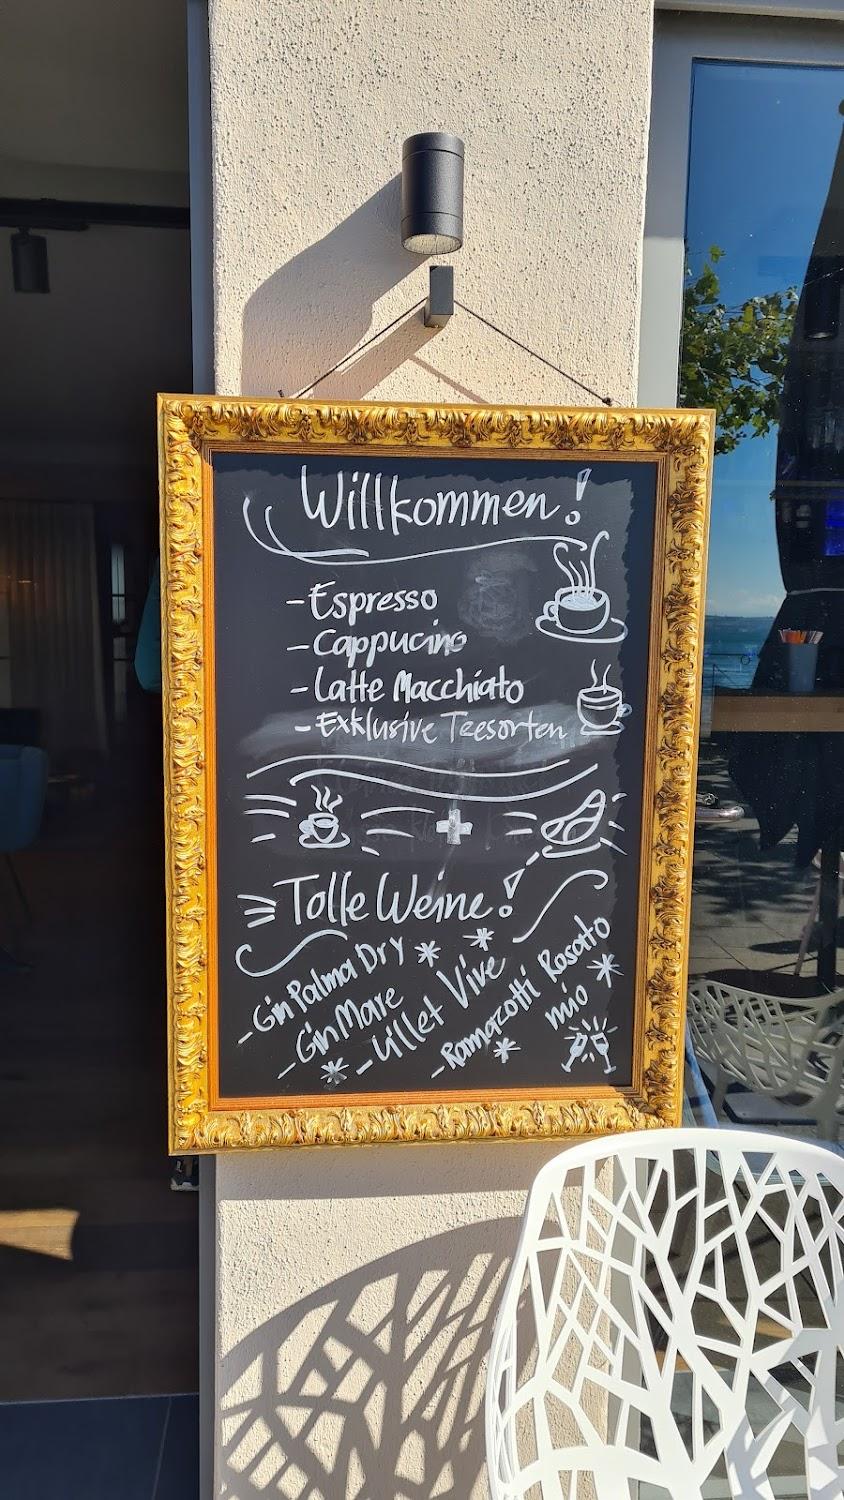 Willkommen!
- Espresso
- Cappucino
- Latte Macchiato
- Exklusive Teesorten
+
Tolle Weine!
- Gin Palma Dry
- Gin Mare
- Lillet Vive
- Ramazotti Rosato
mio